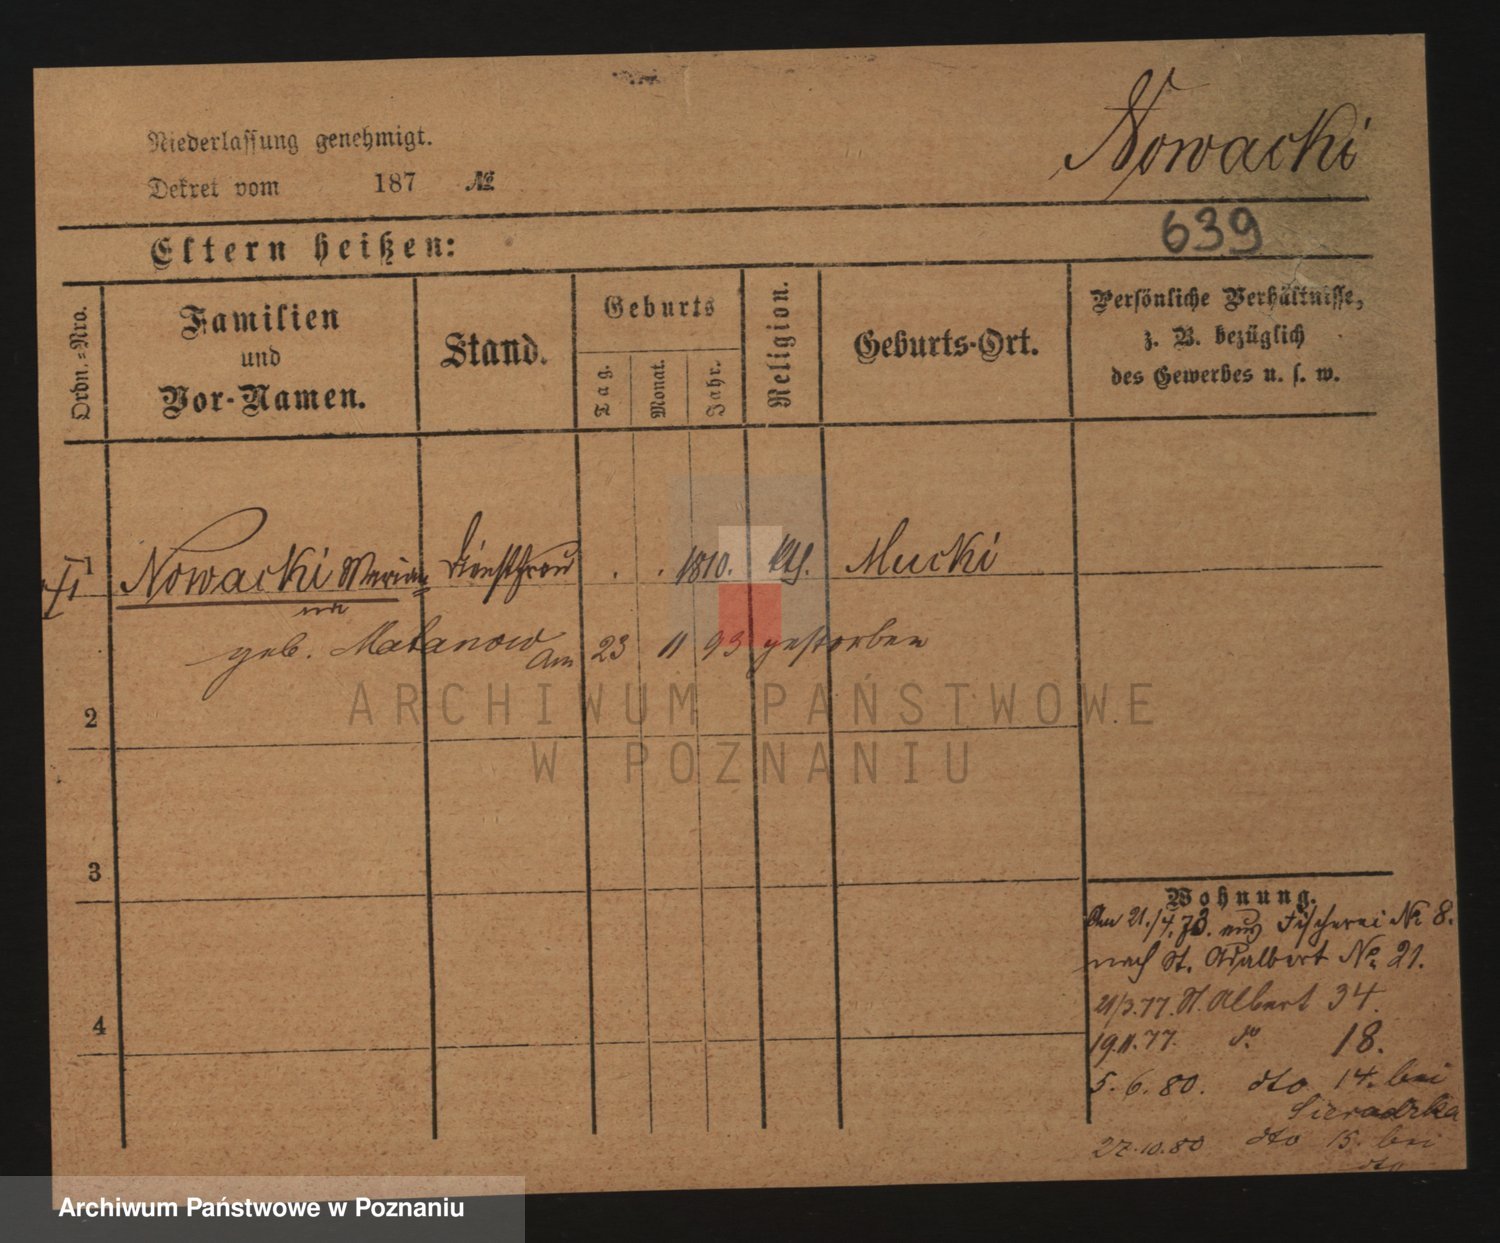 Niederlassung genehmigt.
Dekret vom 187 №
Nowacki
639
Eltern heißen:
Ordn.-Nro.
Familien
und
Vor-Namen.
Stand.
Geburts
Tag.
Monat.
Jahr.
Religion.
Geburts-Ort.
Persönliche Verhältnisse,
z. B. bezüglich
des Gewerbes u. s. w.
1 Nowacki Marian Dienstfrau . . 1810. kth. Mucki
na
geb. Matanow am 23 11 93 gestorben
2
3
4
Wohnung.
Am 21./4.73. aus Fischerei № 8.
nach St. Adalbert № 21.
21/3.77. St. Albert 34.
19.11.77. do 18.
5.6.80. dto 14. bei
Sieradzka
27.10.80 dto 15. bei
dto
ARCHIWUM PAŃSTWOWE
W POZNANIU
Archiwum Państwowe w Poznaniu